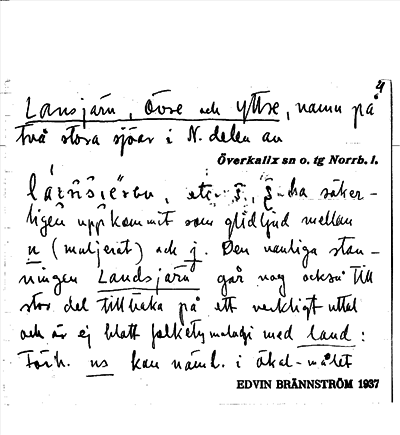 4
Lansjärn, Övre och Yttre, namn på
två stora sjöar i N. delen av
Överkalix sn o. tg Norrb. l.
etc. ha säker-
ligen uppkommit som glidljud mellan
n (muljerat) och j. Den vanliga stav-
ningen Landsjärv går nog också till
stor del tillbaka på ett verkligt uttal
och är ej blott folketymologi med land:
Förh. ns kan näml. i ökal-målet
EDVIN BRÄNNSTRÖM 1937